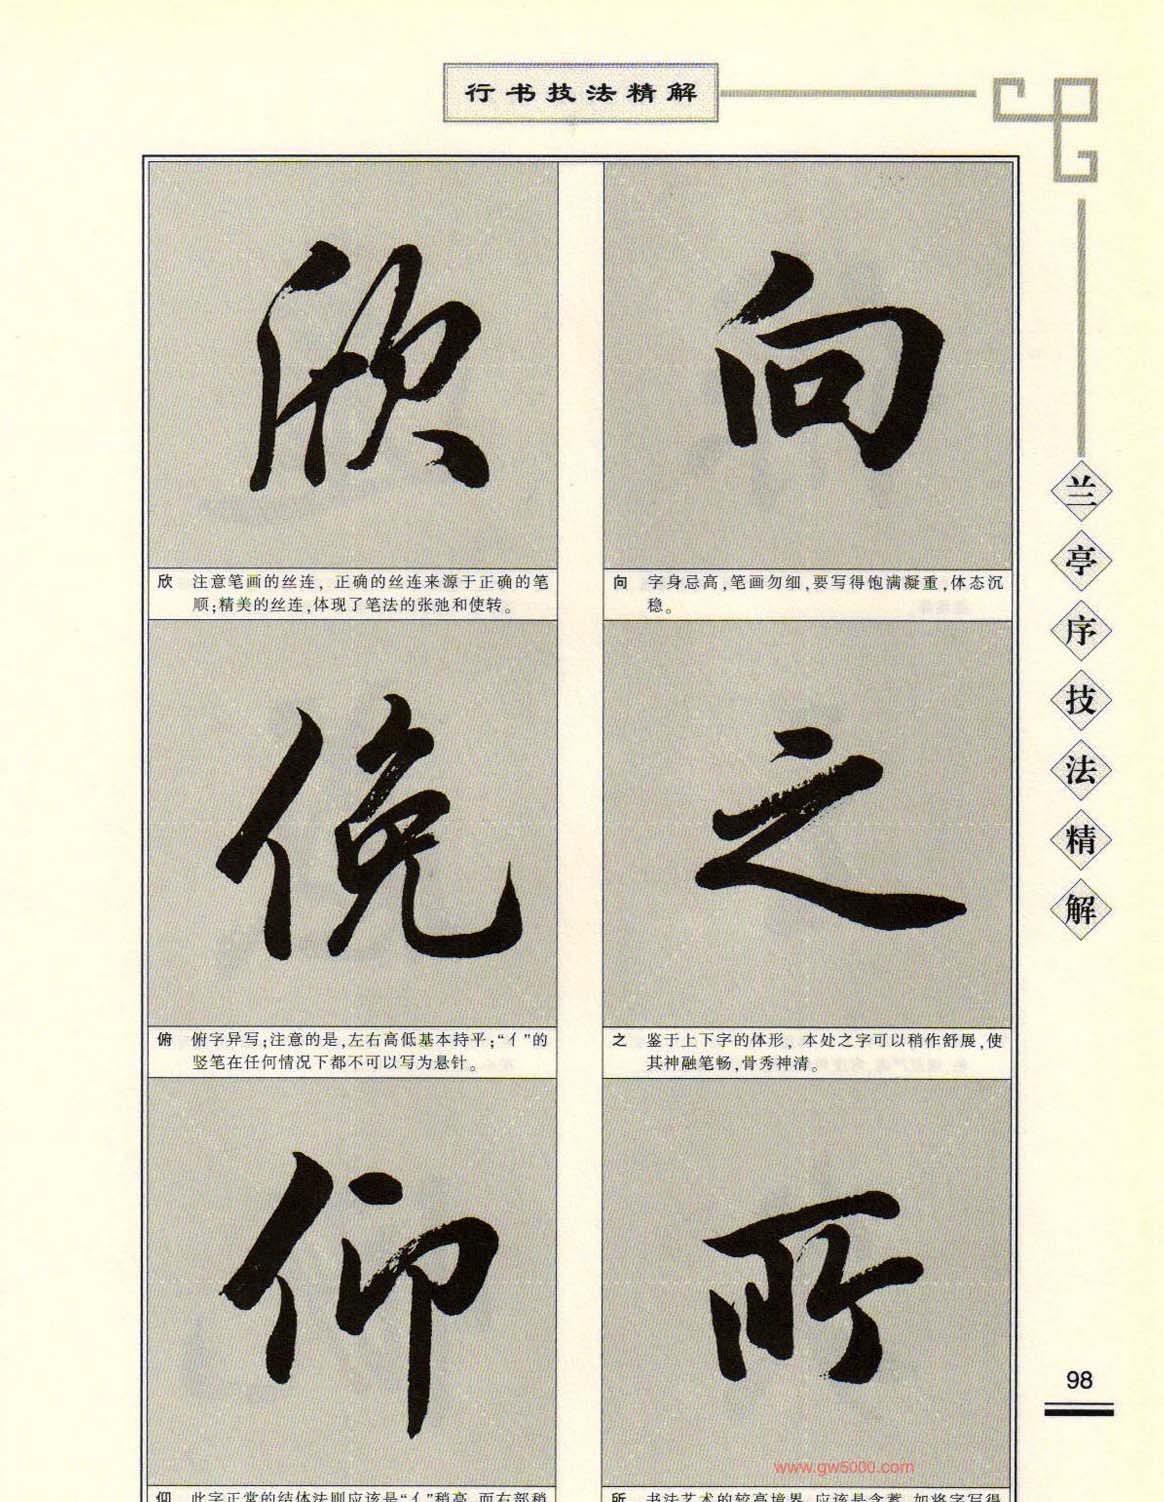 行书技法精解
欣
向
欣 注意笔画的丝连，正确的丝连来源于正确的笔
顺；精美的丝连，体现了笔法的张弛和使转。
向 字身忌高，笔画勿细，要写得饱满凝重，体态沉
稳。
俛
之
俯 俯字异写；注意的是，左右高低基本持平；“亻”的
竖笔在任何情况下都不可以写为悬针。
之 鉴于上下字的体形，本处之字可以稍作舒展，使
其神融笔畅，骨秀神清。
仰
所
仰 此字正常的结体法则应该是“亻”稍高，而右部稍
所 书法艺术的较高境界，应该是含蓄，如将字写得
兰亭序技法精解
98
www.gw5000.com